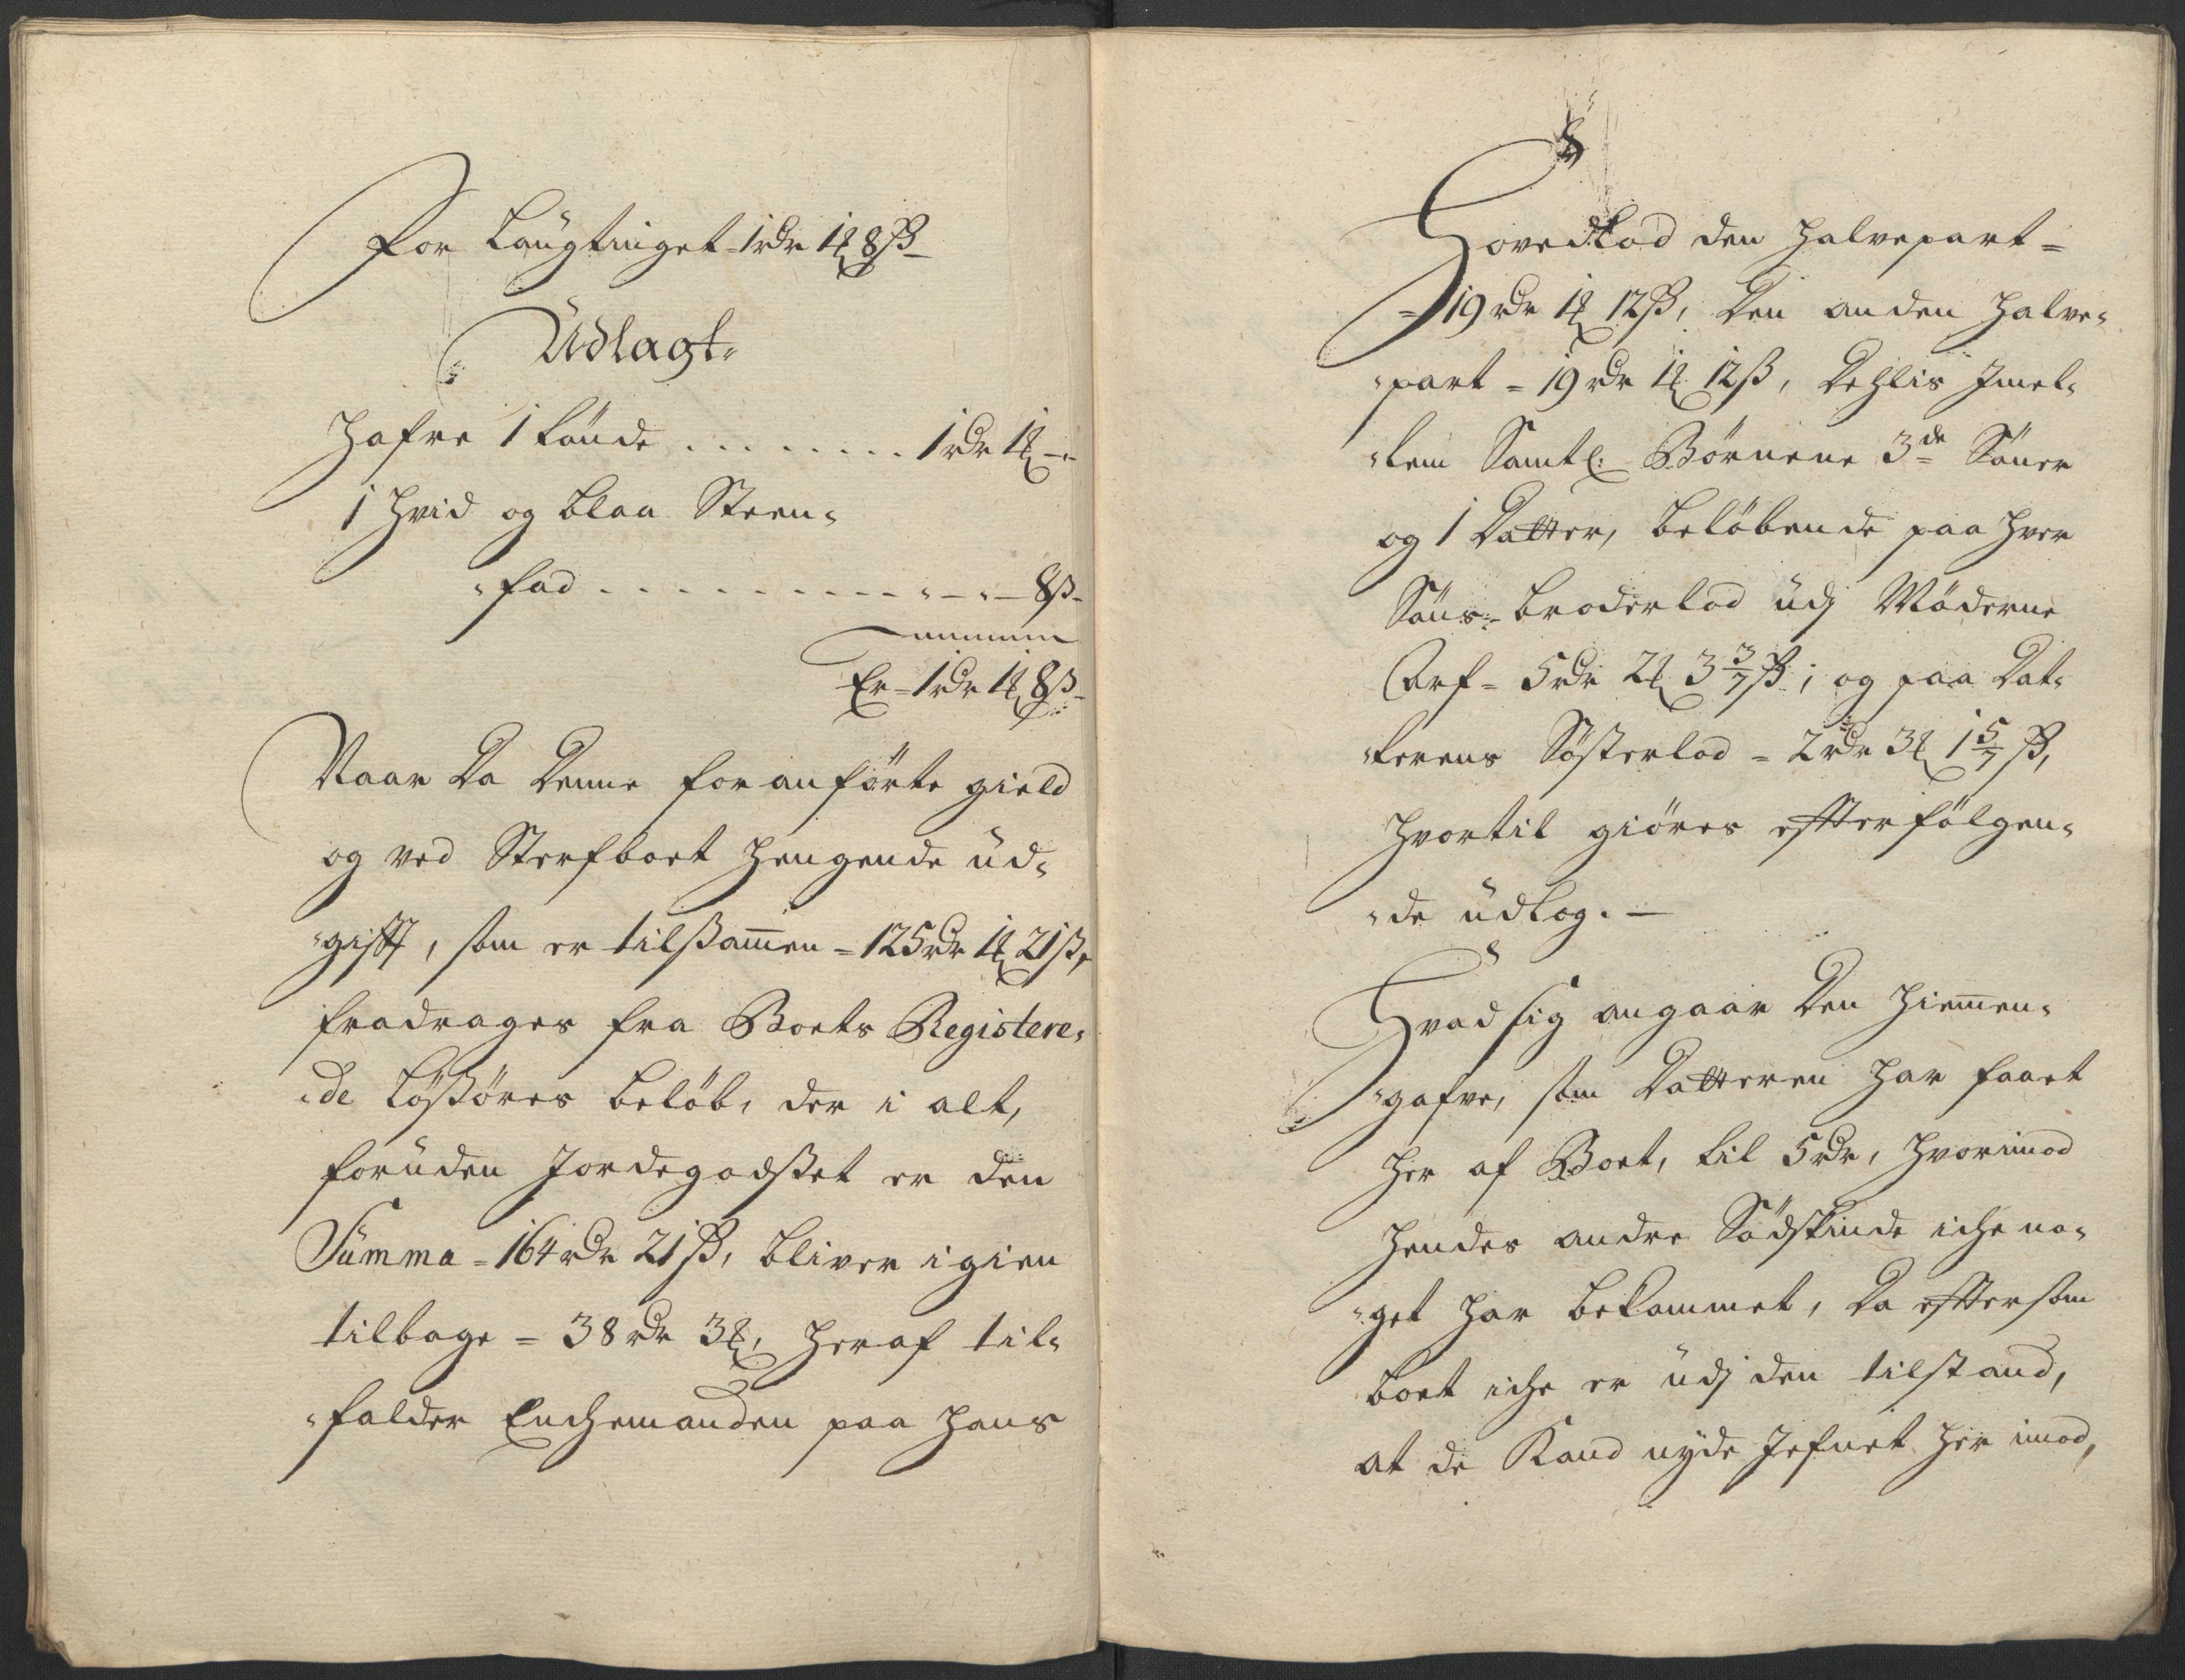 for Laugtinget 1 rdr 1 ꝣ 8 ß
Udlagt-
Hafre 1 tönde . . . . . . . . 1 rdr 1 ꝣ -
1 hvid og blaa Steen-
-fad . . . . . . . . . . - - 8 ß
Er - 1 rdr 1 ꝣ 8 ß
Naar Da Denne for anförte gield
og ved Sterfboet hengende ud-
-gifft, som er tilßam̅en = 125 rdr 1 ꝣ 21 ß,
fradrages fra Boets Registere-
-de Lößöres beløb, der i alt,
foruden Jordegodsset er den
Summa = 164 rdr 21 ß, bliver igien
tilbage = 38 rdr 3 ꝣ, Heraf til-
-falder Enchemanden paa hans
Hovedlod den halvepart =
= 19 rdr 1 ꝣ 12 ß, Den anden halve-
-part = 19 rdr 1 ꝣ 12 ß, Dehlis Imel-
-lem Samtl: Børnene 3de Söner
og 1 Datter, belöbende paa hver
Söns- broderlod udj Möderne
Arf = 5 rdr 2 ꝣ 3 3/7 ß; og paa Dat-
-terens Sösterlod = 2 rdr 3 ꝣ 1 5/7 ß,
hvortil giöres effterfölgen-
-de udlog. —
Hvad sig angaar Den Hiem̅en-
-gafve, som Datteren har faaet
her af Boet, til 5 rdr, hvorimod
hendes andre Södskinde iche no-
-get har bekommet, Da effter som
boet iche er udj den tilstand,
at de Kand nyde Jefnet her imod,